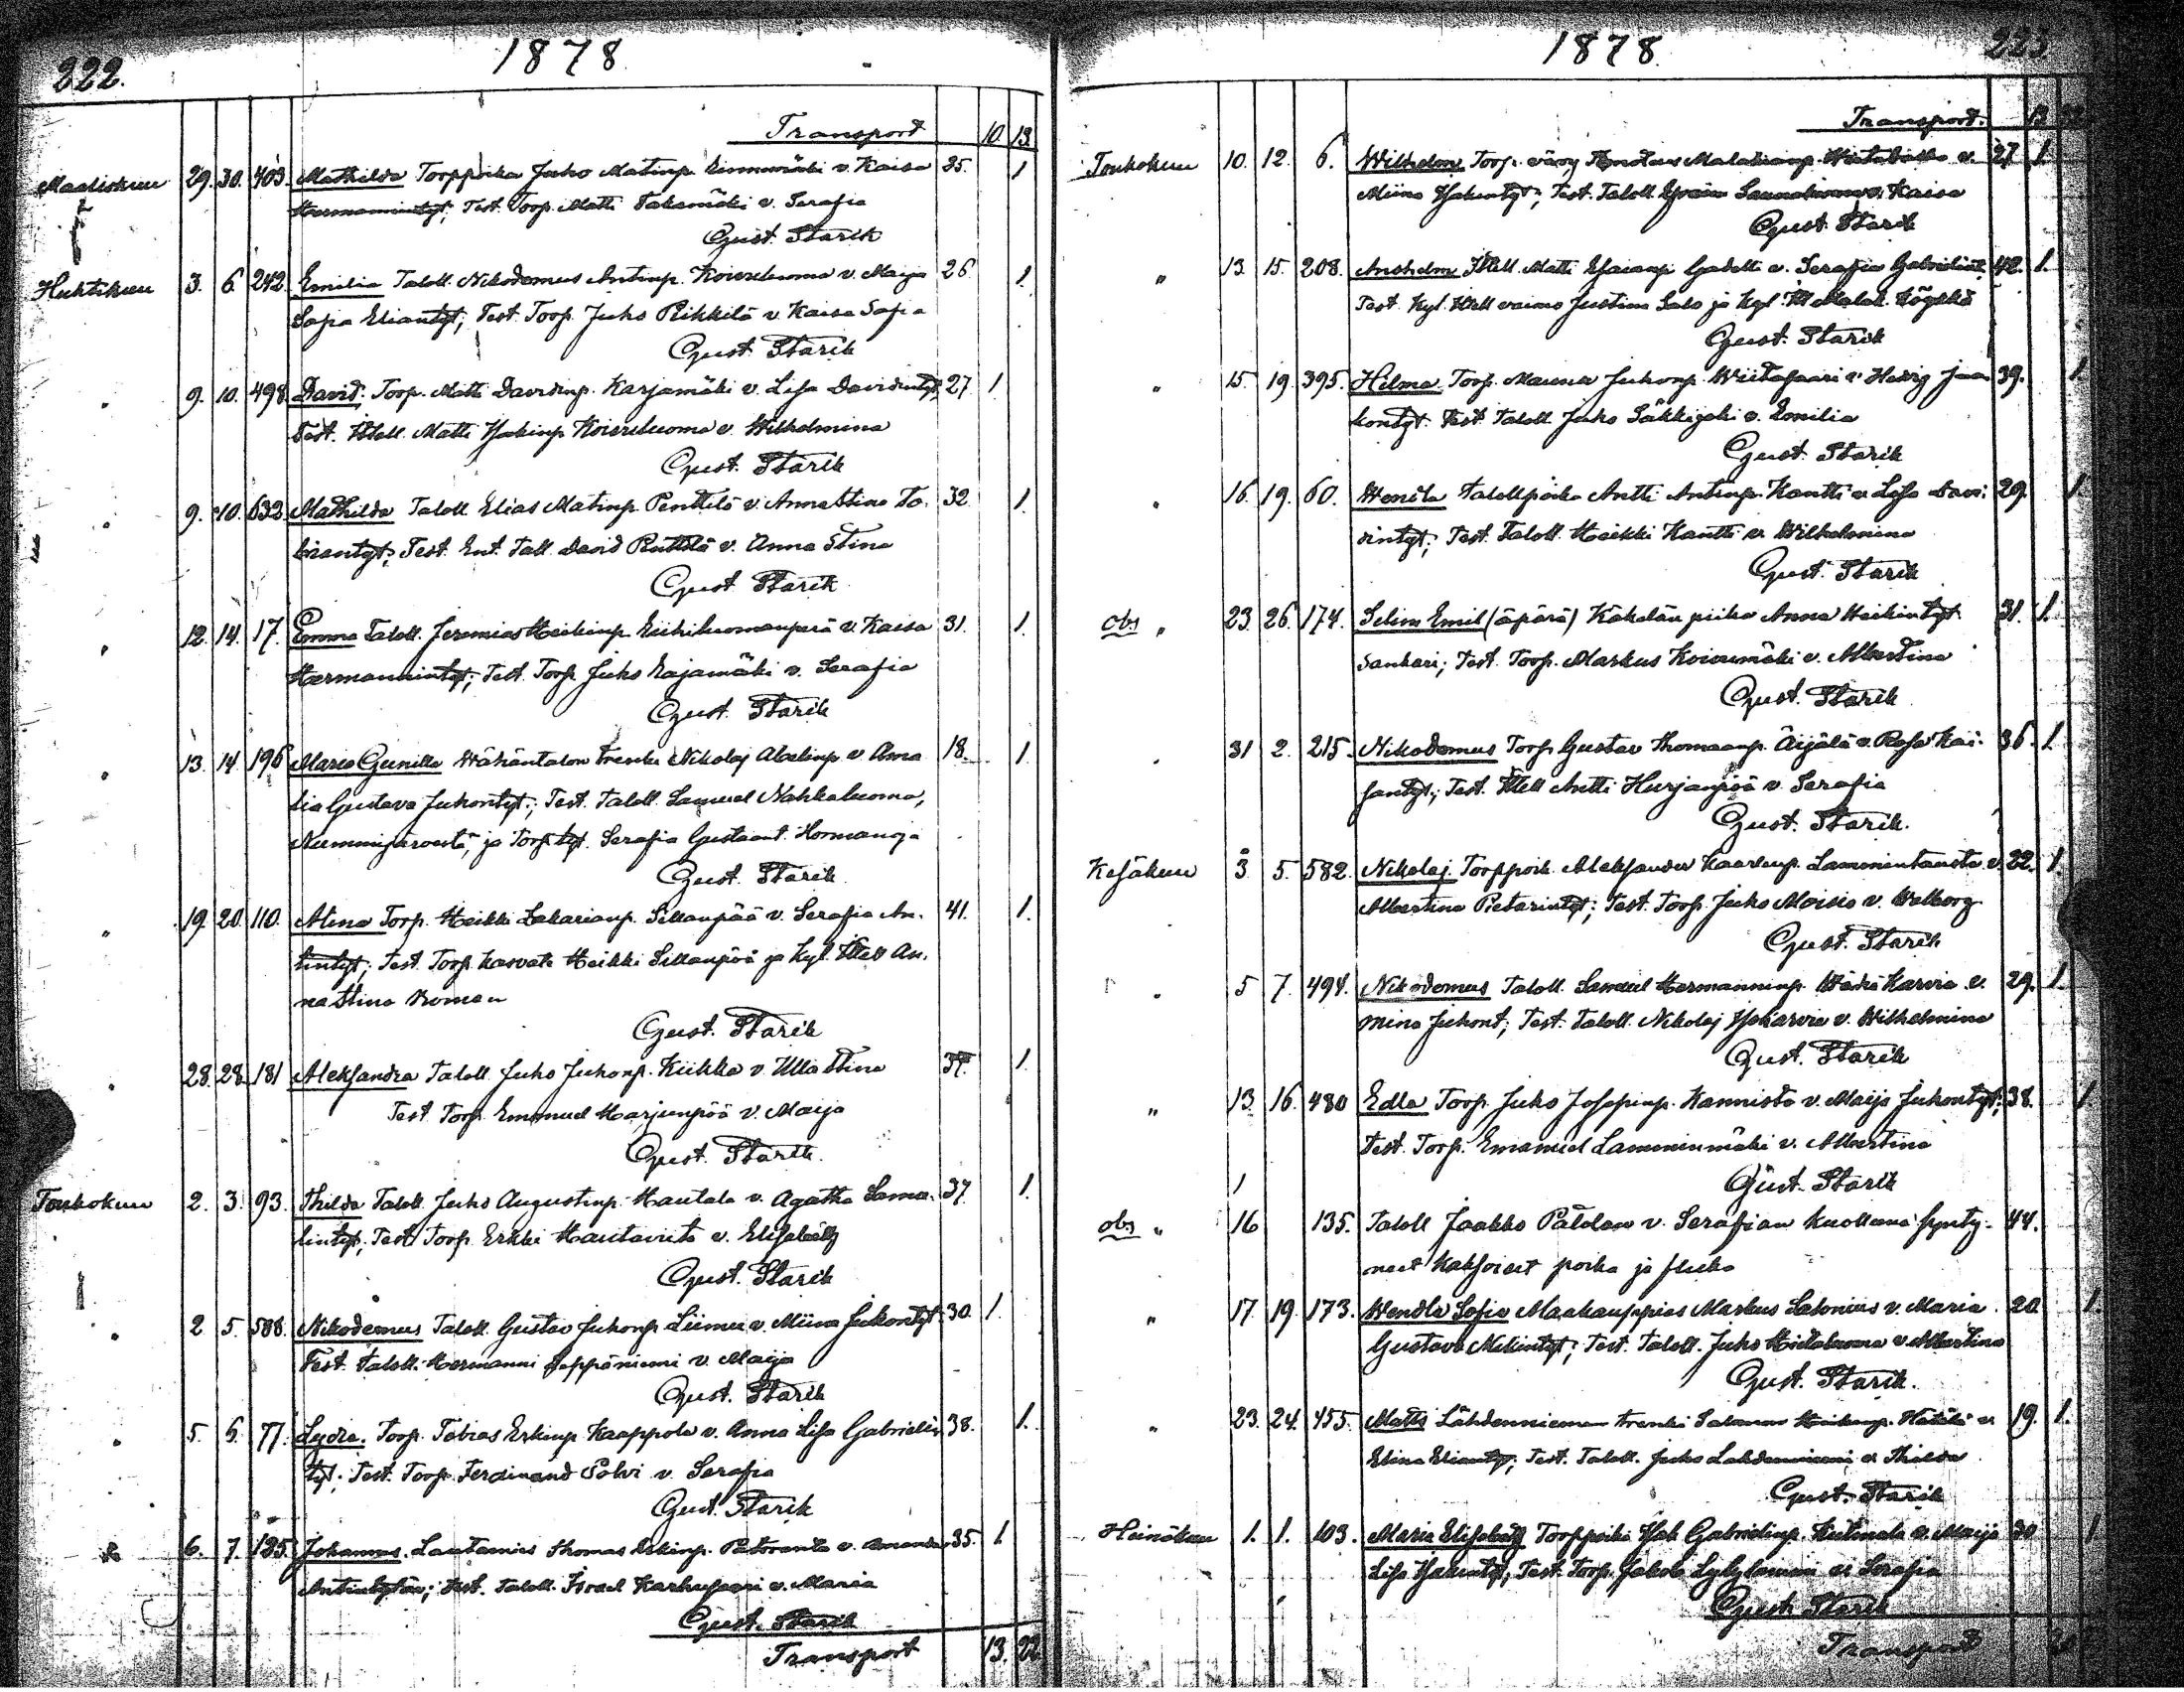 222.
1878
Transport 10 13
Maaliskuu 29. 30. 403. Mathilda Torppoika Juho Matinp. v. Kaisa 35. 1
Hermannintyt; Test. Torp. Matti v. Serafia
Gust. Starik
Huhtikuu 3. 6 242. Emilia Taloll. Nikodemus Antinp. Koivuluoma v. Maija 26. 1
Sofia Eliantyt; Test. Torp. Juho Pikkilä v. Kaisa Sofia
Gust. Starik
9. 10. 498. David. Torp. Matti Davidinp. Karjamäki v. Lisa Davidintyt, 27 1
Test. Itsell. Matti Koivuluoma v. Wilhelmina
Gust. Starik
9. 10. 632. Mathilda Taloll. Elias Matinp. Penttilä v. Anna Stina To. 32 1.
biantyt; Test. Ent. Tall. David Penttilä v. Anna Stina
Gust. Starik
" 12. 14. 17. Emma Taloll. Jeremias Heikinp. v. Kaisa 31. 1.
Hermannintyt; Test. Torp. Juho Rajamäki v. Serafia
Gust. Starik
" 13. 14. 196 Maria Gunilla Wähäntalon trenki Nikolaj v. Ama 18. 1
lia Gustava Juhontyt.; Test. Taloll. Samuel Nahkaluoma,
Nummijärveltä, ja Torp. tyt. Serafia Gustaant. Hormanoja
Gust. Starik
" 19. 20. 110. Alina Torp. Heikki Sakarianp. Sillanpää v. Serafia An. 41. 1.
tintyt; Test. Torp. Heikki Sillanpää ja Kyl. Itsell. An.
na Stina Roman
Gust. Starik
28. 28. 181 Aleksandra Taloll. Juho Juhonp. Kiikka v. Ulla Stina 37. 1.
Test. Torp. Emanuel Harjunpää v. Maija
Gust. Starik.
Toukokuu 2. 3. 93. Thilda Taloll. Juho Augustinp. Hautala v. Agatha Samu. 37. 1.
lintyt; Test. Torp. Erkki Hautaviita v. Elisabeth
Gust. Starik
2 5. 588. Nikodemus Taloll. Gustav Juhonp. v. Miina Juhontyt. 30. 1.
Test. Taloll. Hermanni Seppäniemi v. Maija
Gust. Starik
5. 6. 77. Lydia. Torp. Tobias Erkinp. Kaappola v. Anna Lisa Gabrielin 38. 1.
tyt. Test. Torp. Ferdinand Polvi v. Serafia
Gust. Starik
6. 7. 185. Johannes. Lautamies Thomas Erkinp. v. Amanda 35. 1
Test. Taloll. Israel Karhusaari v. Maria
Gust. Starik
Transport 13. 22
1878. 223.
Transport. 13
Toukokuu 10. 12. 6. Wilhelm Torp. v. 27 1.
Miina Test. Taloll. v. Kaisa
Gust. Starik
" 13. 15. 208. Anshelm Itsell. Matti v. Serafia Gabrielint. 42. 1.
Test. Kyl. Itsell. vaimo Justina Salo ja Kyl.
Gust. Starik
" 15. 19. 395. Hilma. Torp. Mauna Juhonp. Wiitasaari v. Hedvig Jaa 39. 1.
kontyt. Test. Taloll. Juho Säkkijoki v. Emilia
Gust. Starik
16. 19. 60. Taloll.poika Antti Antinp. Kantti v. Lisa Davi. 29. 1
dintyt; Test. Taloll. Heikki Kantti v. Wilhelmina
Gust. Starik
obs " 23. 26. 174. Selim Emil (äpärä) Käkelän piika Anna Heikintyt 31. 1.
Sankari; Test. Torp. Markus Koivumäki v. Albertina
Gust. Starik
31 2. 215. Nikodemus Torp. Gustav Thomaanp. Äijälä v. Rosa Kai. 36. 1.
santyt; Test. Itsell. Antti Hurjanpää v. Serafia
Gust. Starik.
Kesäkuu 3. 5. 582. Nikolaj. Torppoik. Aleksander Kaarlenp. Lammintausta v. 22. 1.
Albertina Pietarintyt; Test. Torp. Juho Aloisio v. Walborg
Gust. Starik
5 7. 494. Nikodemus Taloll. Samuel Hermanninp. Wähä Karvia v. 29. 1.
Miina Juhont; Test. Taloll. Nikolaj v. Wilhelmina
Gust. Starik
" 13. 16. 480 Edla Torp. Juho Josepinp. Kannisto v. Maija Juhontyt; 38. 1
Test. Torp. Emanuel Lamminmäki v. Albertina
Gust. Starik
obs " 16 135. Taloll Jaakko Palolan v. Serafian kuolleena synty- 44.
neet kaksoiset poika ja flicka
" 17. 19. 173. Wendla Sofia Maakauppias Markus Salonius v. Maria 20 1.
Gustava Test. Taloll. Juho v. Albertina
Gust. Starik.
" 23. 24. 455. Matts Lähdenniemen trenki v. 19. 1.
Elina Eliantyt; Test. Taloll. Juho Lähdenniemi v. Thilda
Gust. Starik
Heinäkuu 1. 1. 103. Maria Elisabeth Torppoika Isak Gabrielinp. v. Maija 30 1
Lisa Test. Torp. Jakob v. Serafia
Gust. Starik
Transport